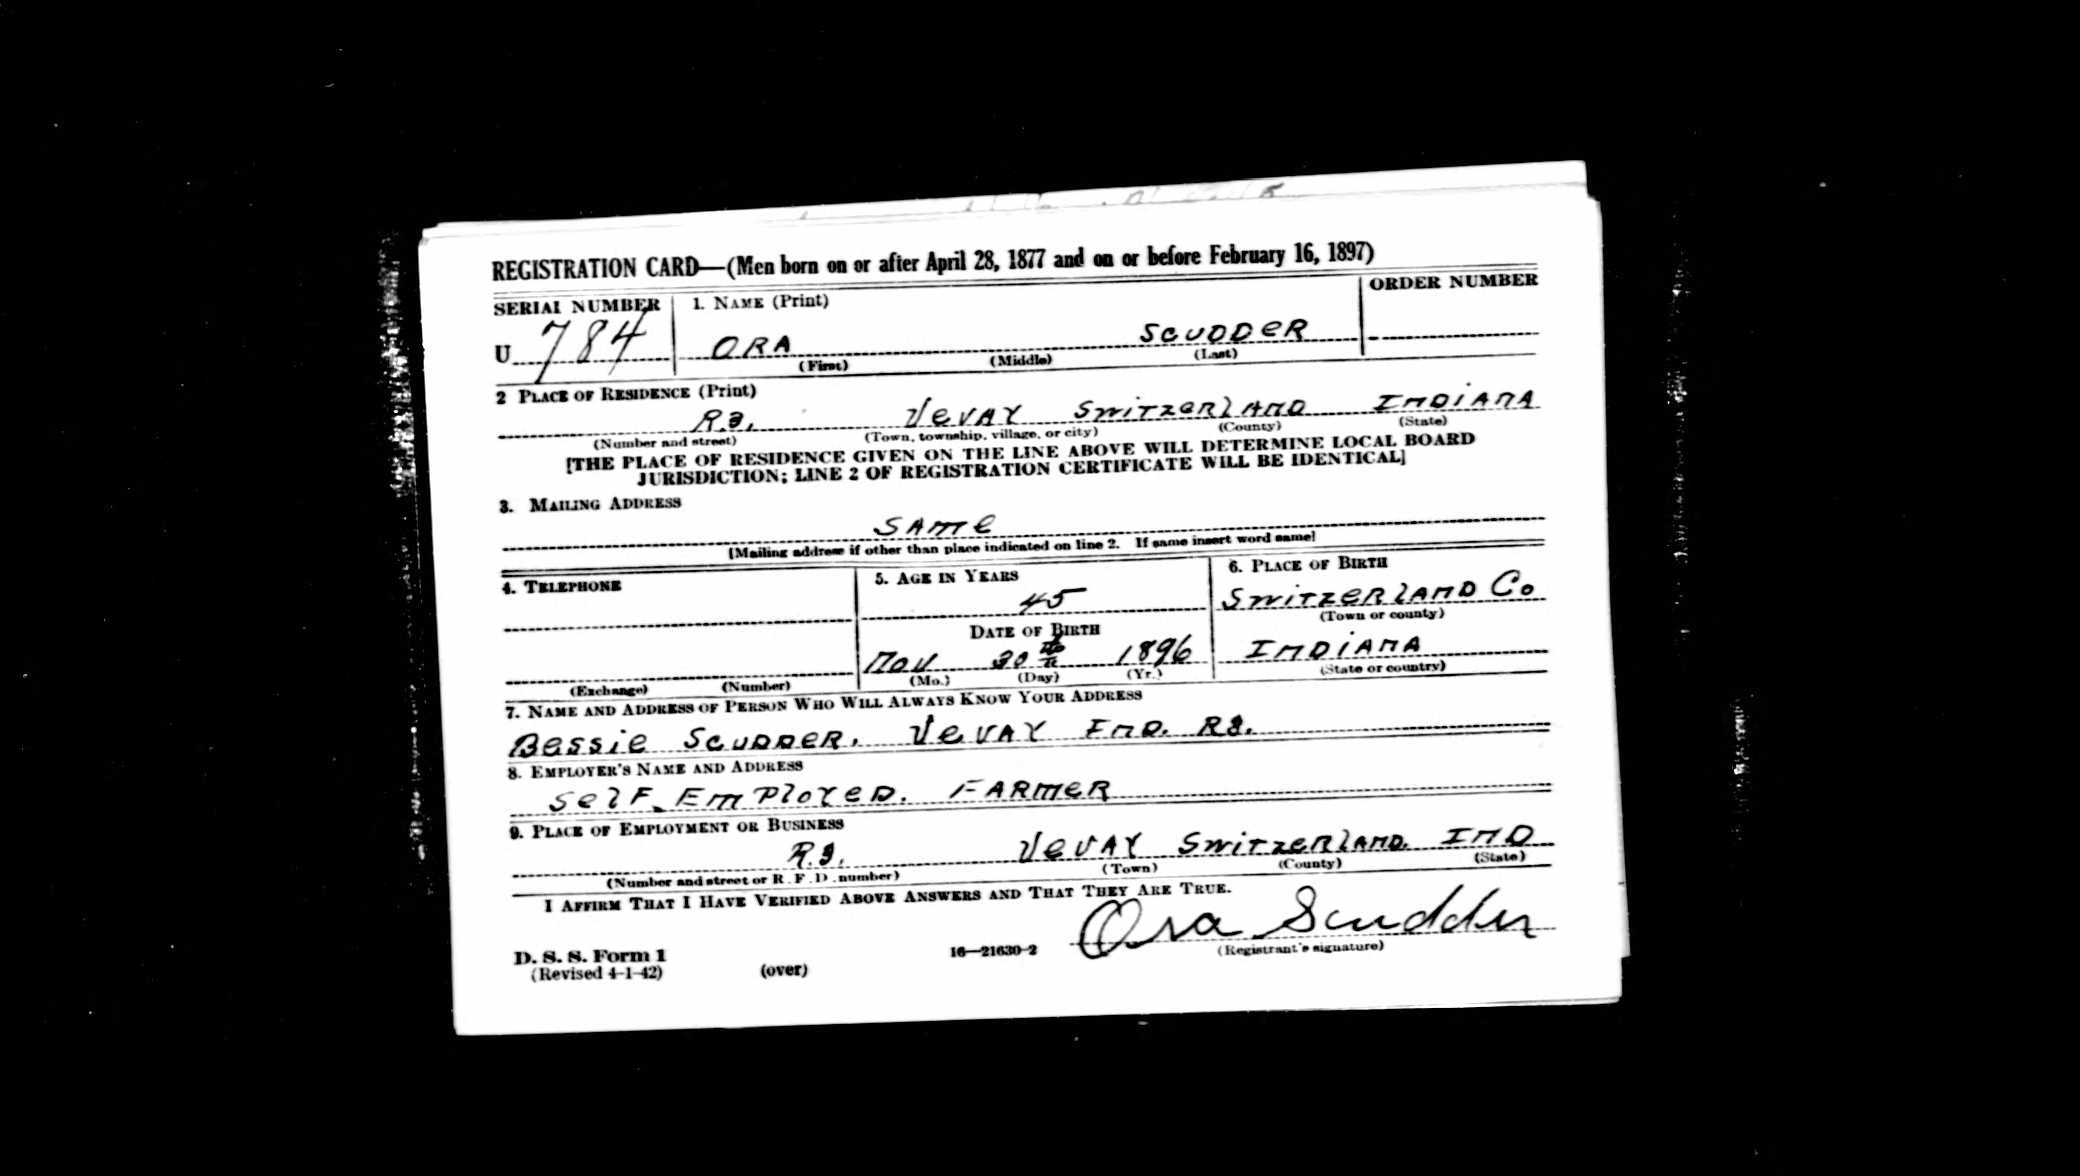 REGISTRATION CARD—(Men born on or after April 28, 1877 and on or before February 16, 1897)
SERIAL NUMBER 1. NAME (Print) ORDER NUMBER
U 784 ORA SCUDDER
(First) (Middle) (Last)
2 PLACE OF RESIDENCE (Print)
VEVAY SWITZERLAND INDIANA
(Number and street) (Town, township, village, or city) (County) (State)
[THE PLACE OF RESIDENCE GIVEN ON THE LINE ABOVE WILL DETERMINE LOCAL BOARD
JURISDICTION; LINE 2 OF REGISTRATION CERTIFICATE WILL BE IDENTICAL]
3. MAILING ADDRESS
SAME
[Mailing address if other than place indicated on line 2. If same insert word same]
4. TELEPHONE 5. AGE IN YEARS 6. PLACE OF BIRTH
45 SWITZERLAND Co
(Town or county)
DATE OF BIRTH
Nov 1896 INDIANA
(Exchange) (Number) (Mo.) (Day) (Yr.) (State or country)
7. NAME AND ADDRESS OF PERSON WHO WILL ALWAYS KNOW YOUR ADDRESS
Bessie SCUDDER. VEVAY IND.
8. EMPLOYER'S NAME AND ADDRESS
Self Employed. FARMER
9. PLACE OF EMPLOYMENT OR BUSINESS
VEVAY SWITZERLAND. IND
(Number and street or R. F. D. number) (Town) (County) (State)
I AFFIRM THAT I HAVE VERIFIED ABOVE ANSWERS AND THAT THEY ARE TRUE.
Ora Scudder
D. S. S. Form 1 16—21630-2 (Registrant's signature)
(Revised 4-1-42) (over)